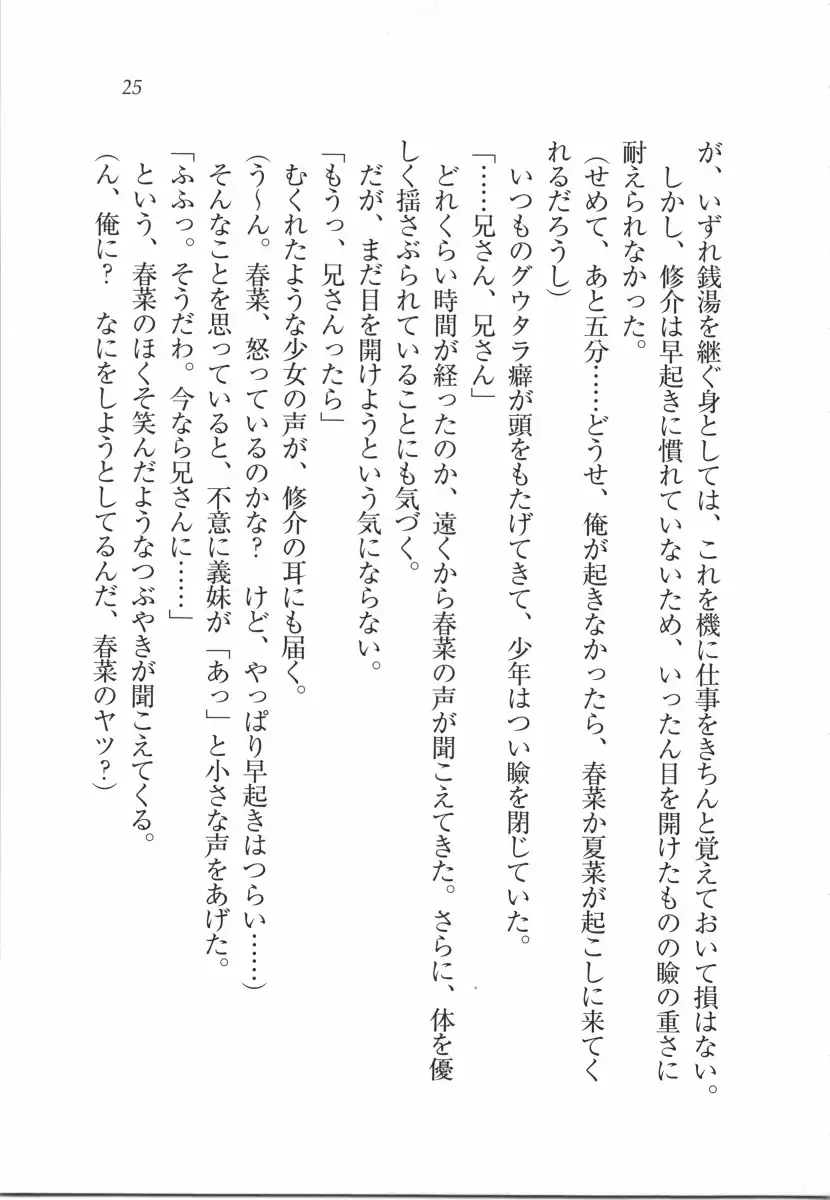 25
が、いずれ銭湯を継ぐ身としては、これを機に仕事をきちんと覚えておいて損はない。
しかし、修介は早起きに慣れていないため、いったん目を開けたものの瞼の重さに
耐えられなかった。
(せめて、あと五分……どうせ、俺が起きなかったら、春菜か夏菜が起こしに来てく
れるだろうし)
いつものグウタラ癖が頭をもたげてきて、少年はつい瞼を閉じていた。
「……兄さん、兄さん」
どれくらい時間が経ったのか、遠くから春菜の声が聞こえてきた。さらに、体を優
しく揺さぶられていることにも気づく。
だが、まだ目を開けようという気にならない。
「もうっ、兄さんったら」
むくれたような少女の声が、修介の耳にも届く。
(う〜ん。春菜、怒っているのかな？　けど、やっぱり早起きはつらい……)
そんなことを思っていると、不意に義妹が「あっ」と小さな声をあげた。
「ふふっ。そうだわ。今なら兄さんに……」
という、春菜のほくそ笑んだようなつぶやきが聞こえてくる。
(ん、俺に？　なにをしようとしてるんだ、春菜のヤツ？)